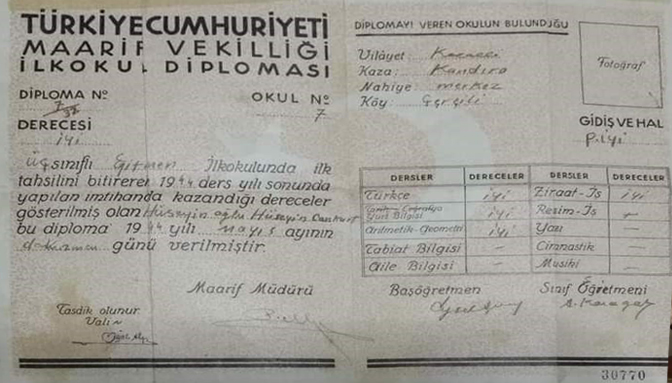 TÜRKİYECUMHURİYETİ
MAARİF VEKİLLİĞİ
İLKOKUL DİPLOMASI
DİPLOMA Nº
OKUL Nº
7
DERECESİ
iyi
Üç sınıflı Eğitmen İlkokulunda ilk
tahsilini bitirerek 1944 ders yılı sonunda
yapılan imtihanda kazandığı dereceler
gösterilmiş olan Hüseyin oğlu Hüseyin
bu diploma 1944 yılı mayıs ayının
günü verilmiştir.
Maarif Müdürü
Tasdik olunur
Vali
DİPLOMAYI VEREN OKULUN BULUNDUĞU
Vilâyet: Kocaeli
Kaza: Kandıra
Nahiye: merkez
Köy:
Fotoğraf
GİDİŞ VE HAL
p.iyi
DERSLER DERECELER DERSLER DERECELER
Türkçe iyi Ziraat-İş iyi
Yurt Bilgisi iyi Resim-İş —
Aritmetik-Geometri iyi Yazı
Tabiat Bilgisi — Cimnastik —
Aile Bilgisi — Musiki —
Başöğretmen Sınıf Öğretmeni
30770